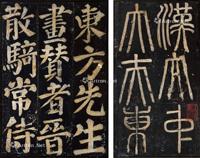 漢太中
大夫東
東方先生
畫賛者晋
散騎常侍